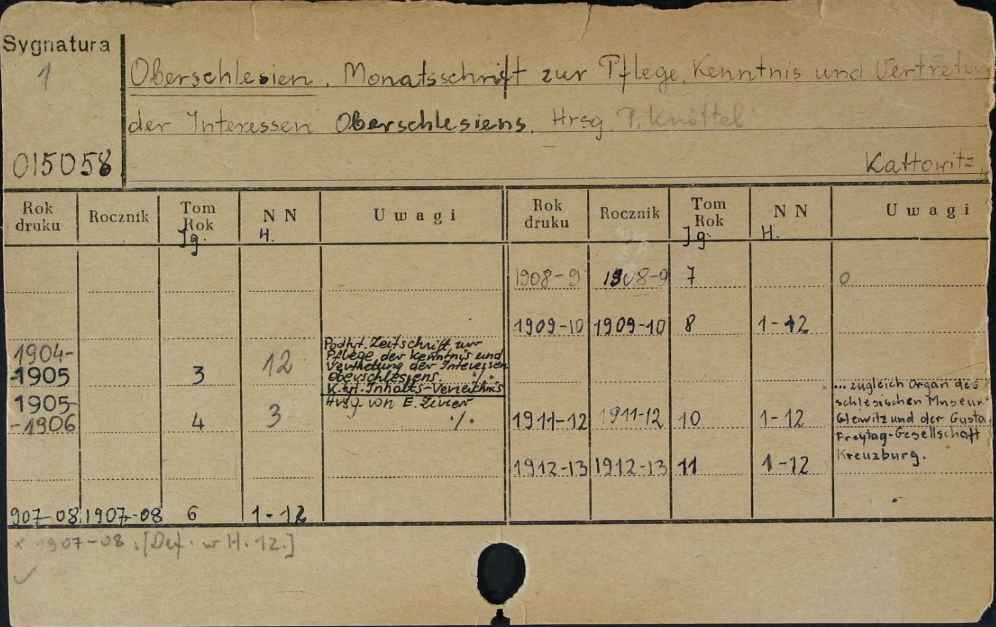 Sygnatura
1
015058
Oberschlesien. Monatsschrift zur Pflege, Kenntnis und Vertretun
der Interessen Oberschlesiens. Hrsg. P. Knöttel
Kattowitz,
Rok druku Rocznik Tom Rok Jg. N N H. U w a g i Rok druku Rocznik Tom Rok Jg. N N H. U w a g i
1908-9 1908-9 7 0
1909-10 1909-10 8 1-12
1904-
-1905 3 12
Podtyt. Zeitschrift zur
Pflege der Kenntnis und
Verthetung der Interessen
Oberschlesiens. ./.
K.tyt. Inhalts-Verzeithnis
1905-
-1906 4 3
Hrsg. von E. Zivier
./.
1911-12 1911-12 10 1-12
... zugleich Organ des
schlesischen Museu
Gleiwitz und der Gusta
Freytag-Gesellschaft
Kreuzburg.
1912-13 1912-13 11 1-12
907-08 1907-08 6 1-12
x 1907-08. [Def. w H. 12.]